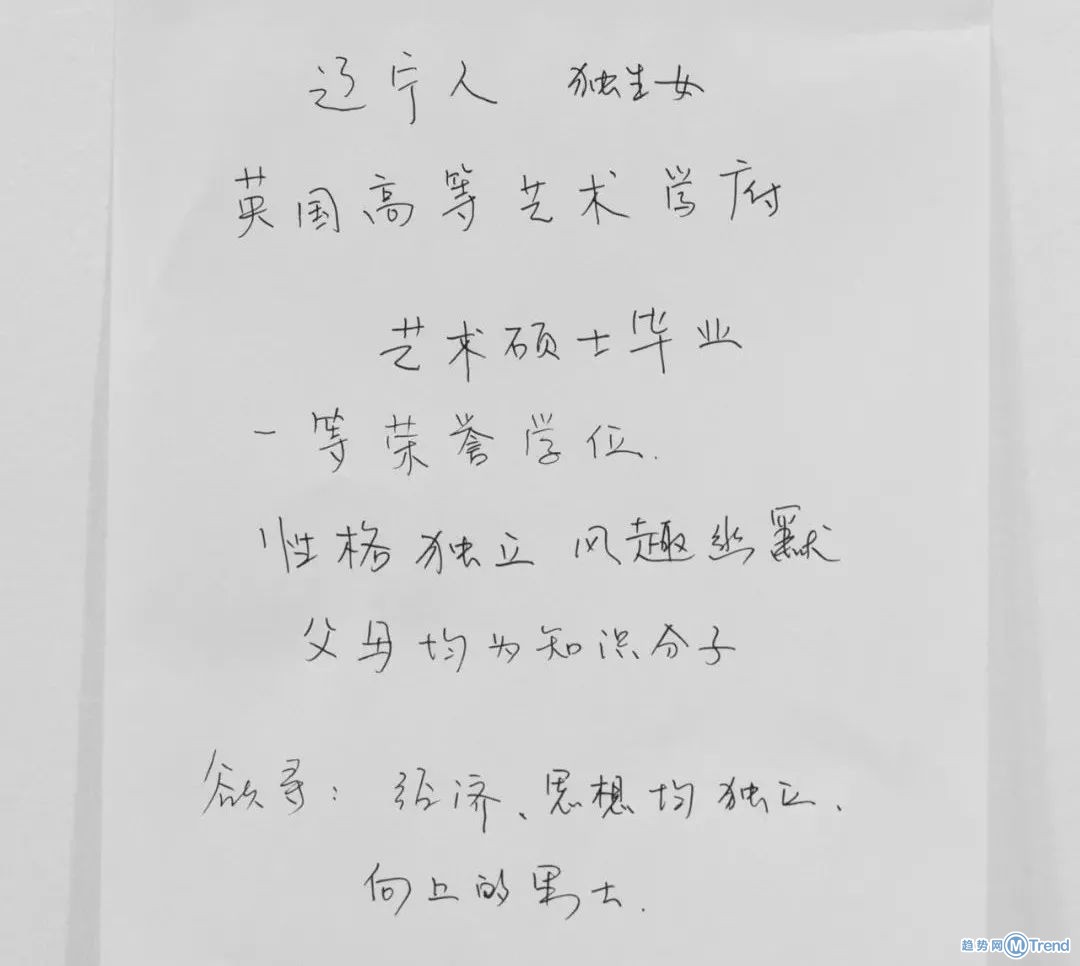 辽宁人 独生女
英国高等艺术学府
艺术硕士毕业
一等荣誉学位.
性格独立 风趣幽默
父母均为知识分子
欲寻：经济、思想均独立、
向上的男士.
趋势网 M Trend